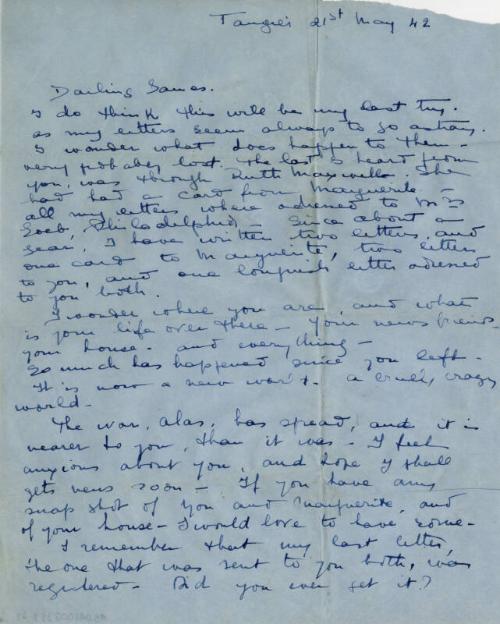 Tangier 21st May 42
Darling James.
I do think this will be my last try.
as my letters seem always to go astray.
I wonder what does happen to them -
very probably lost. The last I heard from
you, was through Ruth Maxwell. She
had had a card from Marguerite -
all my letters where adressed to Mrs
Loeb, Philadelphia - Since about a
year, I have written two letters, and
one card to Marguerite, two letters
to you, and one long letter adressed
to you both.
I wonder where you are, and what
is your life over there - Your news friends
your house - and everything -
So much has happened since you left -
It is now a new world. a cruel, crazy
world -
The war, alas, has spread, and it is
nearer to you, than it was - I feel
anxious about you, and hope I shall
gets news soon - If you have any
snap shot of you and Marguerite, and
of your house - I would love to have some -
I remember that my last letter,
the one that was sent to you both, was
registered - Did you ever get it?